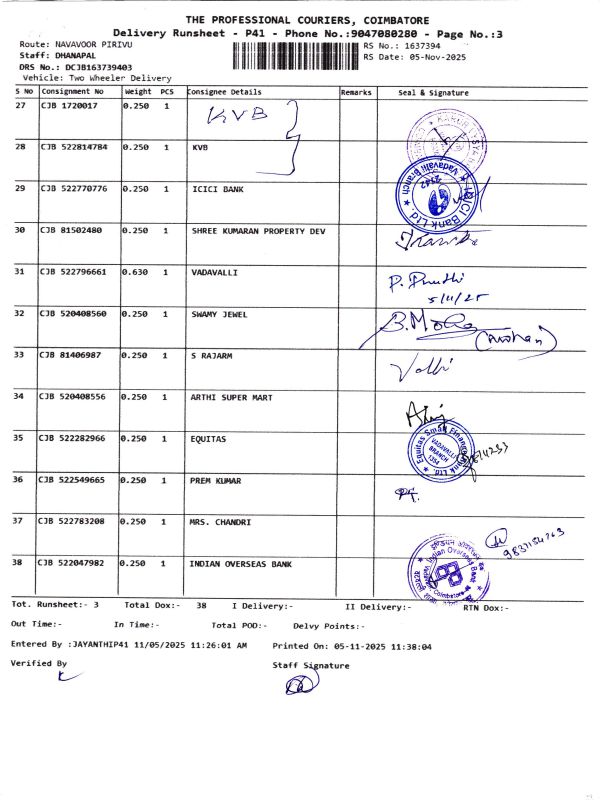 THE PROFESSIONAL COURIERS, COIMBATORE
Delivery Runsheet - P41 - Phone No.:9047080280 - Page No.:3
Route: NAVAVOOR PIRIVU RS No.: 1637394
Staff: DHANAPAL RS Date: 05-Nov-2025
DRS No.: DCJB163739403
Vehicle: Two Wheeler Delivery
S No Consignment No Weight PCS Consignee Details Remarks Seal & Signature
27 CJB 1720017 0.250 1 KVB
28 CJB 522814784 0.250 1 KVB
29 CJB 522770776 0.250 1 ICICI BANK
ICICI Bank Ltd. Vadavalli Branch
2142
30 CJB 81502480 0.250 1 SHREE KUMARAN PROPERTY DEV
31 CJB 522796661 0.630 1 VADAVALLI
5/11/25
32 CJB 520408560 0.250 1 SWAMY JEWEL
33 CJB 81406987 0.250 1 S RAJARM
34 CJB 520408556 0.250 1 ARTHI SUPER MART
35 CJB 522282966 0.250 1 EQUITAS
Equitas Small Finance Bank Ltd.
VADAVALLI
BRANCH
1354
36 CJB 522549665 0.250 1 PREM KUMAR
37 CJB 522783208 0.250 1 MRS. CHANDRI
38 CJB 522047982 0.250 1 INDIAN OVERSEAS BANK
Indian Overseas Bank
Coimbatore
Tot. Runsheet:- 3 Total Dox:- 38 I Delivery:- II Delivery:- RTN Dox:-
Out Time:- In Time:- Total POD:- Delvy Points:-
Entered By :JAYANTHIP41 11/05/2025 11:26:01 AM Printed On: 05-11-2025 11:38:04
Verified By Staff Signature